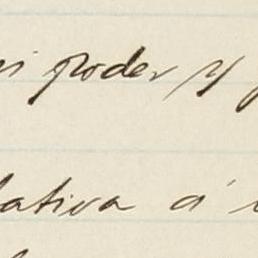 poder y
lativa á